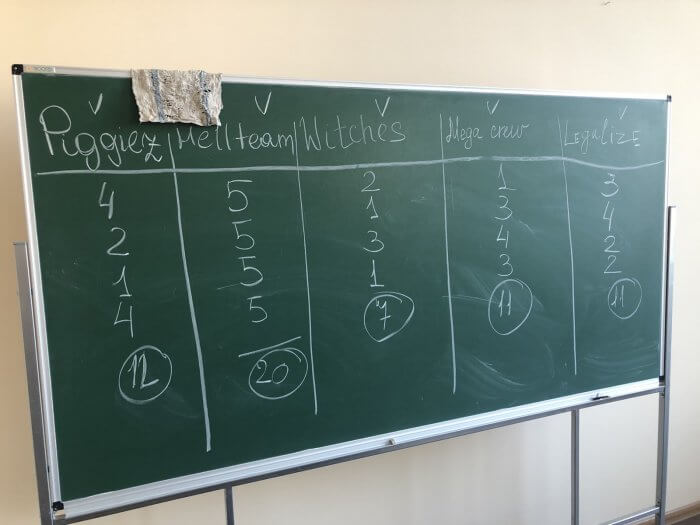 V V V V V
Piggiez Hellteam Witches Mega crew LEGALIZE
4 5 2 1 3
2 5 1 3 4
1 5 3 4 2
4 5 1 3 2
12 20 7 11 11